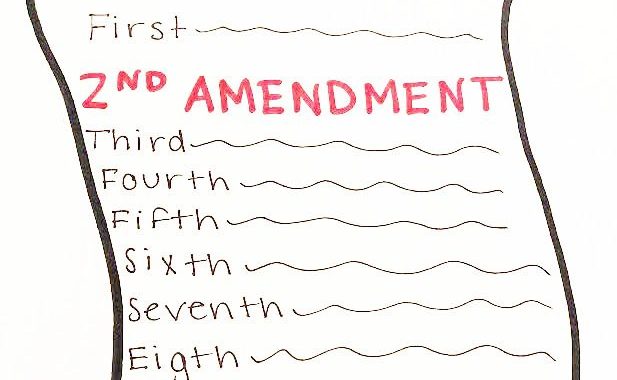 First
2ND AMENDMENT
Third
Fourth
Fifth
Sixth
Seventh
Eigth